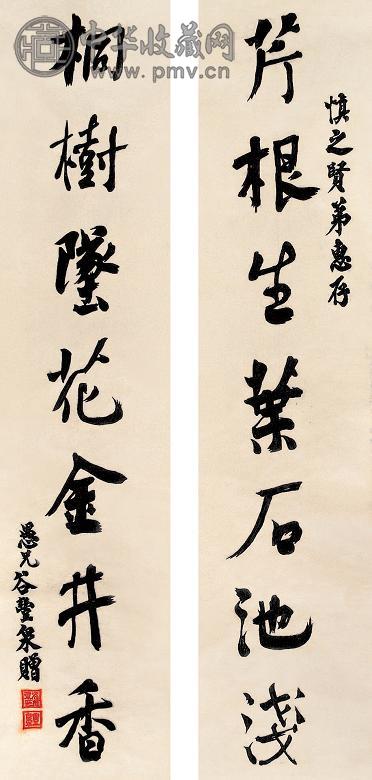 慎之賢弟惠存
芹根生葉石池淺
桐樹墜花金井香
愚兄谷璧泉贈
中华收藏网
www.pmv.cn